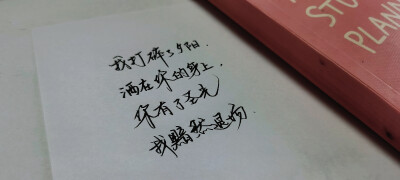 我打碎了夕阳.
洒在你的身上,
你有了圣光
我黯然退场.
STU
PLANN